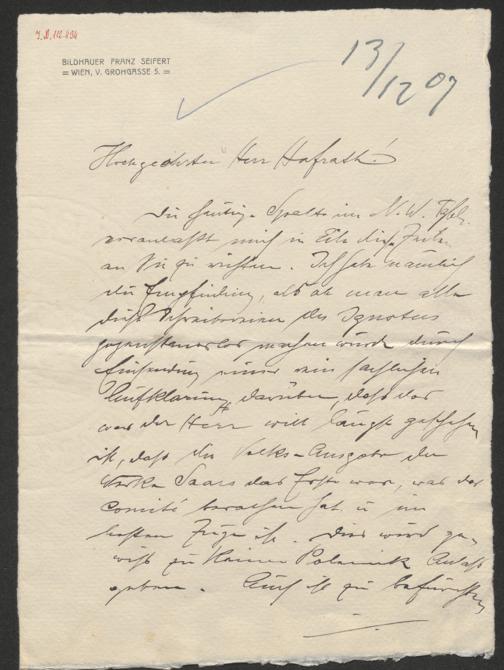 I.N. 112.894
BILDHAUER FRANZ SEIFERT
WIEN, V. GROHGASSE 5.
13/12 07
Hochgeehrter Herr Hofrath!
Die heutige Spalte im N. W. Tgbl.
veranlasst mich in Eile diese Zeilen
an Sie zu richten. Ich habe nämlich
die Empfindung, als ob man alle
diese des Ignotus
gegenstandslos machen würde durch
Einsendung einer rein sachlichen
Aufklärung darüber, daß das
was der Herr will längst geschehen
ist, daß die Volks-Ausgabe der
Werke Saars das Erste war, was das
Comité berathen hat u im
besten Zuge ist. Dies wird ge-
wiß zu keiner Polemik Anlaß
geben. Auch ist zu befürchten